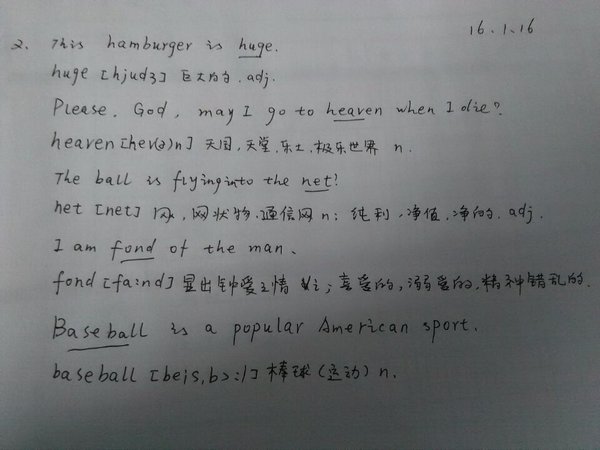 16.1.16
2. This hamburger is huge.
huge [hjudʒ] 巨大的. adj.
Please, God, may I go to heaven when I die?
heaven [hev(ə)n] 天国,天堂,乐土,极乐世界 n.
The ball is flying into the net!
net [net] 网,网状物,通信网 n; 纯利,净值,净的, adj.
I am fond of the man.
fond [fa:nd] 显出钟爱之情 vi; 喜爱的,溺爱的,精神错乱的.
Baseball is a popular American sport.
baseball [beis,bɔ:l] 棒球(运动) n.